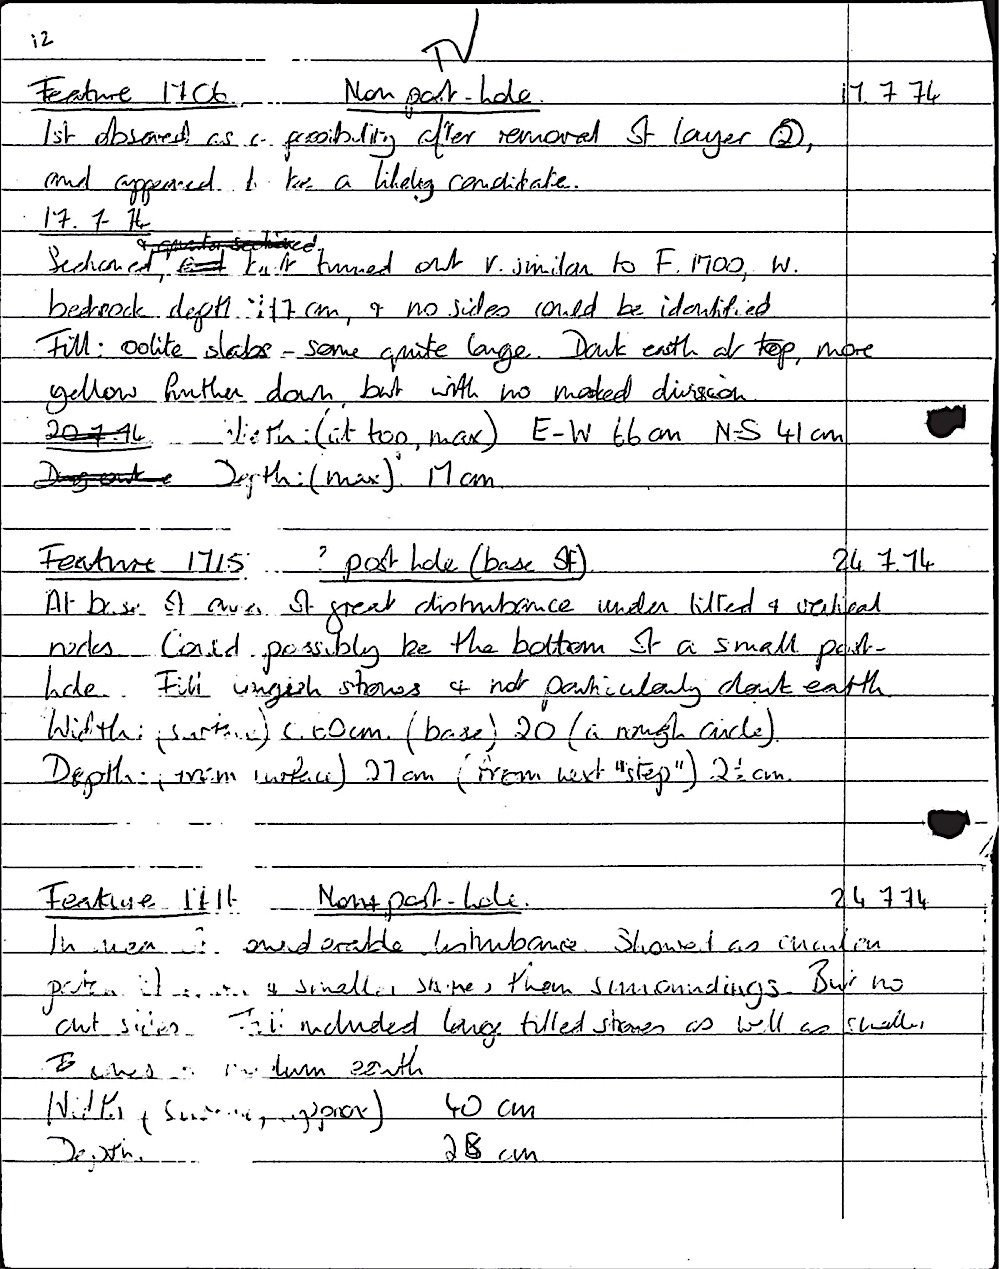 12
TV
Feature 1706 Non post-hole. 17 7 74
1st observed as a possibility after removal of layer ②,
and appeared to be a likely candidate.
17. 7. 74
& quarter sectioned
Sectioned, but turned out v. similar to F. 1700, w.
bedrock depth 17 cm, & no sides could be identified
Fill: oolite slabs - some quite large. Dark earth at top, more
yellow further down, but with no marked division.
20.7.74 Width: (at top, max) E-W 66 cm N-S 41 cm
Dug out Depth: (max): 17 cm
Feature 1715 ? post hole (base of) 24 7.74
At base of area of great disturbance under tilted & vertical
rocks. Could possibly be the bottom of a small post-
hole. Fill stones & not particularly dark earth
Width: (surface) c. 60cm. (base) 20 (a rough circle)
Depth: (from surface) 27cm (from next "step") 2½ cm.
Feature Non post-hole. 24 7 74
In area of considerable disturbance. Showed as circular
& smaller stones than surroundings. But no
cut sides. Fill included large tilled stones as well as smaller
earth
Width (surface, approx) 40 cm
Depth. 28 cm